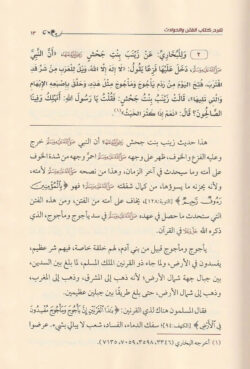 شرح كتاب الفتن والحوادث
١٣
٢ وَلِلْبُخَارِيِّ: عَنْ زَيْنَبَ بِنْتِ جَحْشٍ ﵂ «أَنَّ النَّبِيَّ
ﷺ دَخَلَ عَلَيْهَا فَزِعًا يَقُولُ: «لَا إِلَهَ إِلَّا اللهُ، وَيْلٌ لِلْعَرَبِ مِنْ شَرٍّ قَدِ
اقْتَرَبَ، فُتِحَ الْيَوْمَ مِنْ رَدْمِ يَأْجُوجَ وَمَأْجُوجَ مِثْلُ هَذِهِ، وَحَلَّقَ بِإِصْبَعِهِ الْإِبْهَامِ
وَالَّتِي تَلِيهَا»، قَالَتْ زَيْنَبُ بِنْتُ جَحْشٍ: فَقُلْتُ يَا رَسُولَ اللهِ: أَنَهْلِكُ وَفِينَا
الصَّالِحُونَ؟ قَالَ: «نَعَمْ إِذَا كَثُرَ الْخَبَثُ»(١).
هذا حديث زينب بنت جحش ﵂ أن النبي ﷺ خرج
وعليه الفزع والخوف، ظهر على وجهه ﷺ وجهه من شدة الخوف
على أمته وما سيحدث في آخر الزمان، وهذا من نصحه ﷺ لأمته،
ولأنه يحزنه ما يسوؤها، من كمال شفقته ﷺ فهو ﴿بِالْمُؤْمِنِينَ
رَءُوفٌ رَّحِيمٌ﴾ [التوبة: ١٢٨]، يخاف على أمته من الفتن، ومن هذه الفتن
التي ستحدث ما حصل في عهده ﷺ في سد يأجوج ومأجوج، الذي
ذكره الله في القرآن.
يأجوج ومأجوج قبيل من بني آدم، لهم خلقة خاصة، فيهم شر عظيم،
يفسدون في الأرض، ولما جاء ذو القرنين الملك المسلم، الذي جال الأرض
من جهة شمال الأرض؛ لأنه ذهب إلى المشرق، وذهب إلى المغرب،
وذهب إلى شمال الأرض، حتى بلغ طريقًا بين جبلين عظيمين.
فقال المسلمون هناك لذي القرنين: ﴿يَا ذَا الْقَرْنَيْنِ إِنَّ يَأْجُوجَ وَمَأْجُوجَ مُفْسِدُونَ
فِي الْأَرْضِ﴾ [الكهف: ٩٤]، سفك الدماء، الفساد، شعب لا يبالي بشيء، عرضوا
(١) أخرجه البخاري (٣٣٤٦، ٣٥٩٨، ٧٠٥٩، ٧١٣٥).